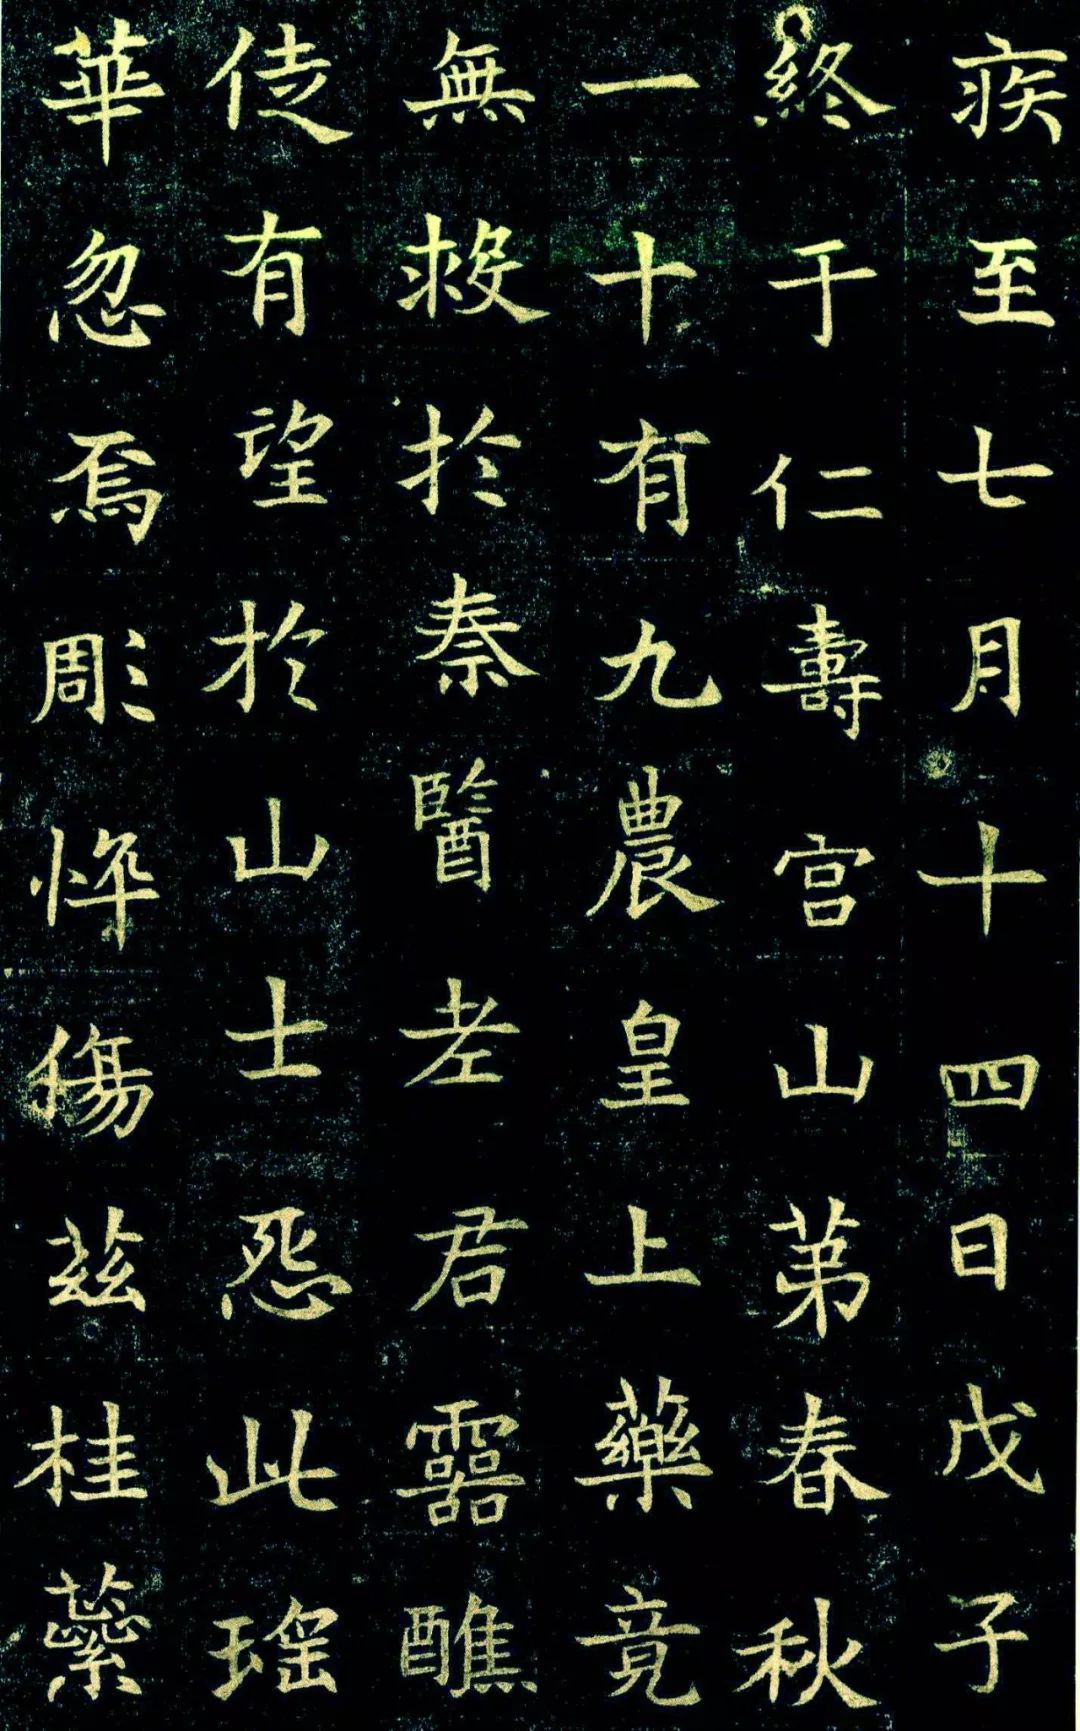 疾至七月十四日戊子
終于仁壽宮山苐春秋
一十有九農皇上藥竟
無救於秦醫老君靈醮
徒有望於山士怨此瑤
華忽焉彫悴傷茲桂蘂